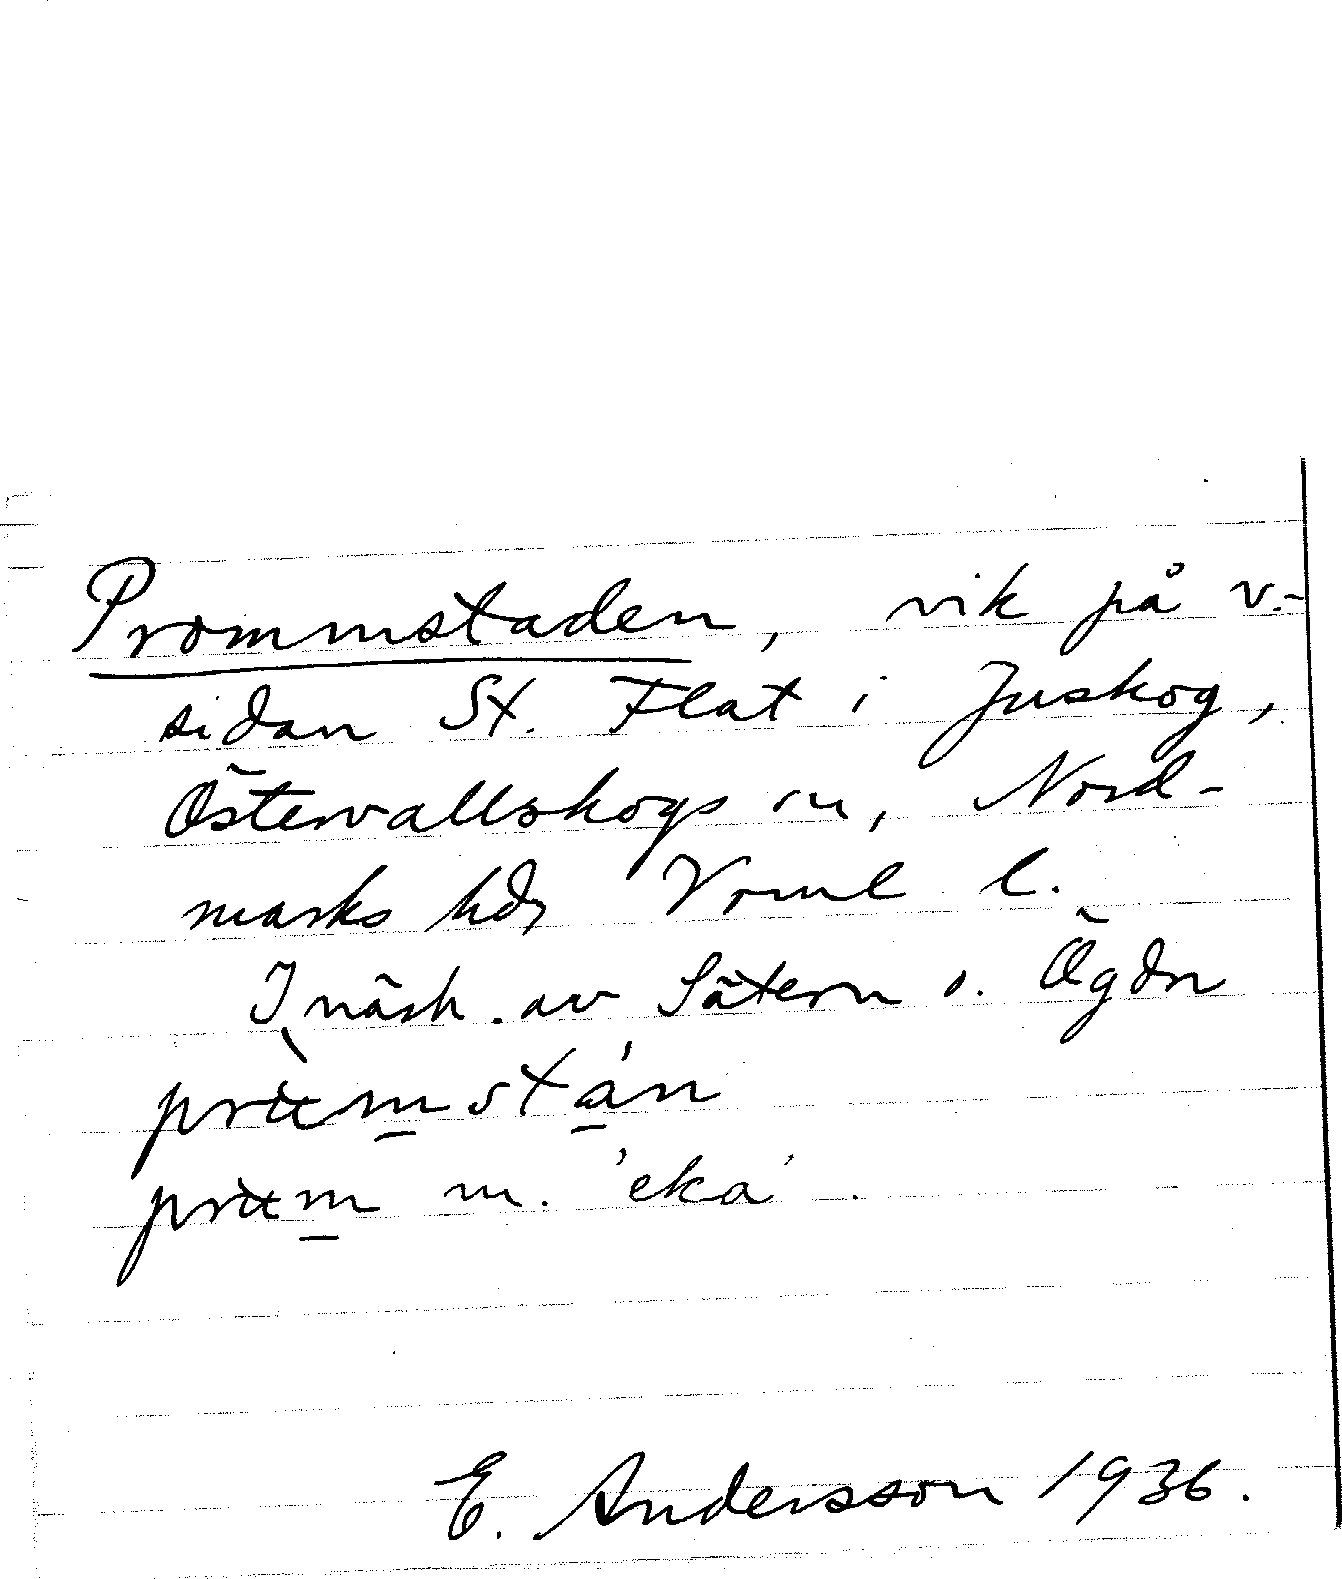 Prommstaden, vik på v.-
sidan St. Flat i Juskog,
Östervallskogs sn, Nord-
marks hd, Vrml l.
I närh. av Sätern o. Ögdn
m. 'eka'.
E. Andersson 1936.